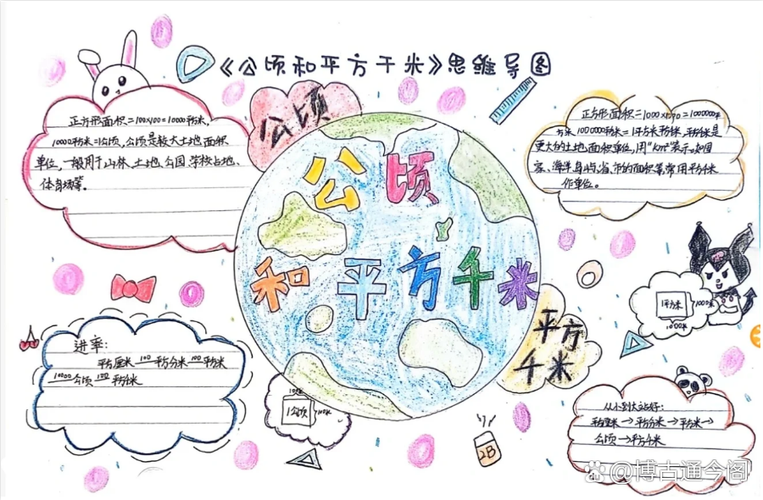 《公顷和平方千米》思维导图
公顷
正方形面积=100×100=10000平方米,
10000平方米=1公顷,公顷是较大土地面积
单位,一般用于山林、土地、公园、学校占地、
体育场等。
正方形面积=1000×1000=1000000平
方米,1000000平方米=1平方千米,平方千米是
更大的土地面积单位,用"km²"表示。如国
家、海洋、省、市的面积等,常用平方千米
作单位。
公顷
和平方千米
平方
千米
1平方千米
1000米
1000米
进率:
平方厘米 100 平方分米 100 平方米
10000 公顷 100 平方千米
1公顷
100米
100米
2B
从小到大排好:
平方厘米→平方分米→平方米→
公顷→平方千米
@博古通今阁